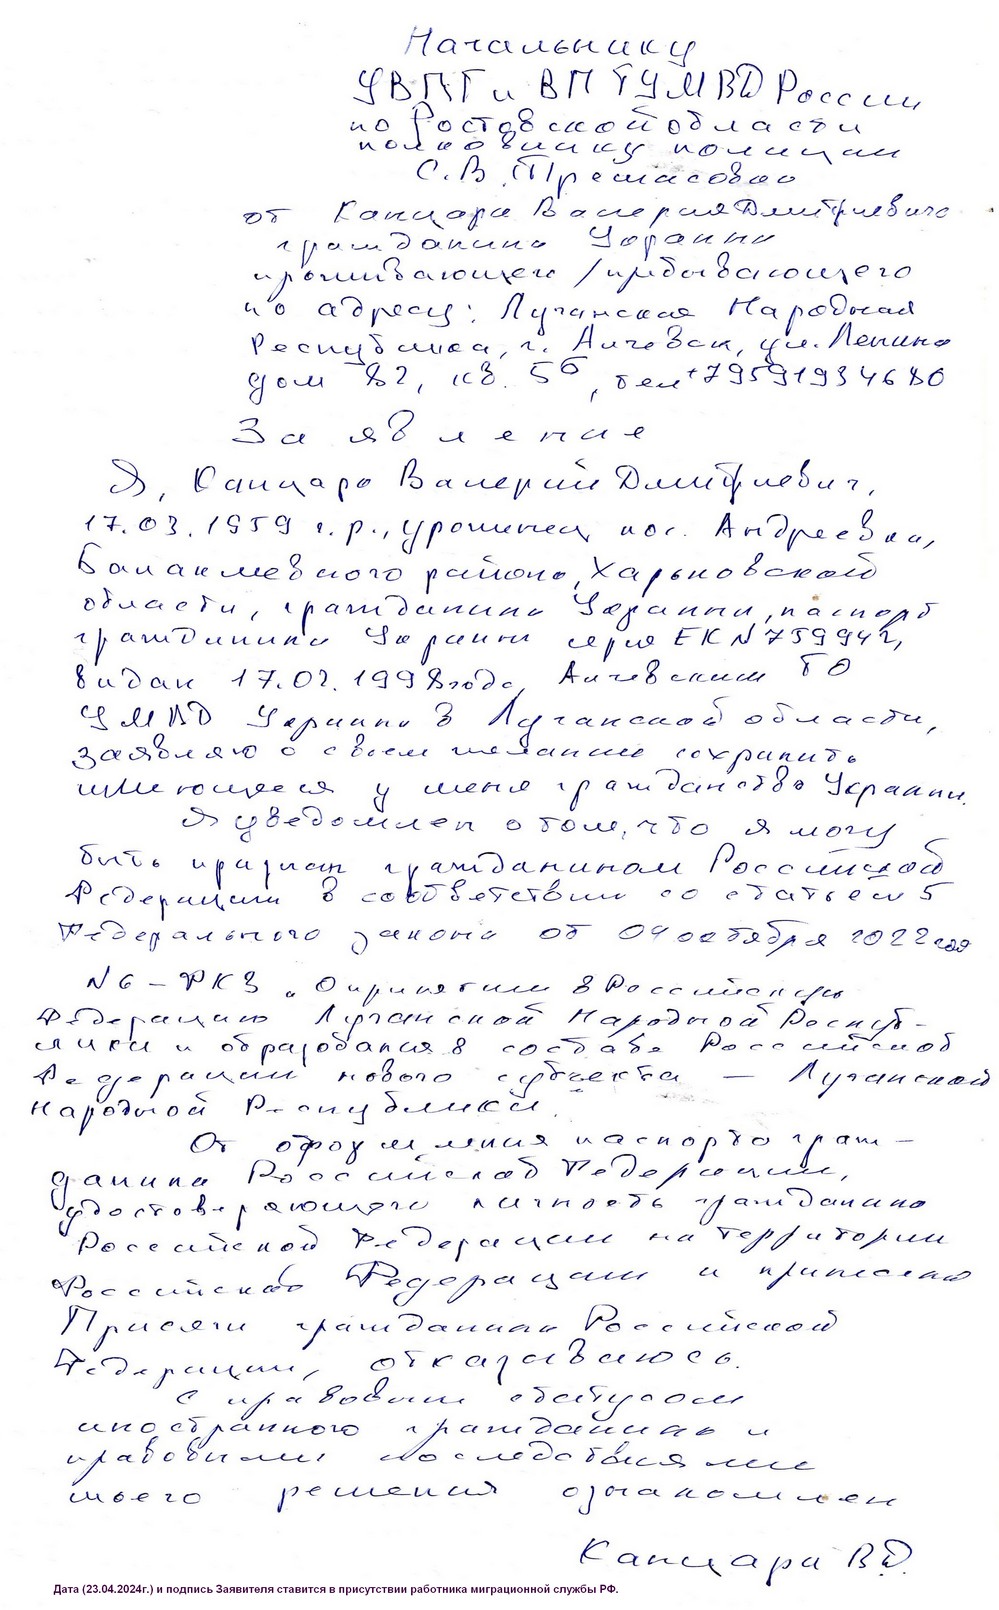 Начальнику
УВПГ и ВП ГУ МВД России
по Ростовской области
полковнику полиции
С.В.
от Канцара Валерия Дмитриевича
гражданина Украины
проживающего / пребывающего
по адресу: Луганская Народная
Республика, г. Алчевск, ул. Ленина
дом 82, кв. 56, тел +79591934680
Заявление
Я, Канцара Валерий Дмитриевич,
17.03.1959 г.р., уроженец пос. Андреевка,
Балаклеевского района, Харьковской
области, гражданина Украины, паспорт
гражданина Украины серия ЕК N 759942,
видан 17.02.1998 года, Алчевским ГО
УМВД Украины в Луганской области,
заявляю о своем желании сохранить
имеющееся у меня гражданство Украины.
Я уведомлен о том, что я могу
быть признан гражданином Российской
Федерации в соответствии со статьей 5
Федерального закона от 04 октября 2022 года
N 6-ФКЗ „О принятии в Российскую
Федерацию Луганской Народной Респуб-
лики и образования в составе Российской
Федерации нового субъекта — Луганской
Народной Республики".
От оформления паспорта граж-
данина Российской Федерации,
удостоверяющего личность гражданина
Российской Федерации на территории
Российской Федерации и принесению
Присяги гражданина Российской
Федерации, отказываюсь.
С правовым статусом
иностранного гражданина и
правовыми последствиями
моего решения ознакомлен
Канцара В.Д.
Дата (23.04.2024г.) и подпись Заявителя ставится в присутствии работника миграционной службы РФ.